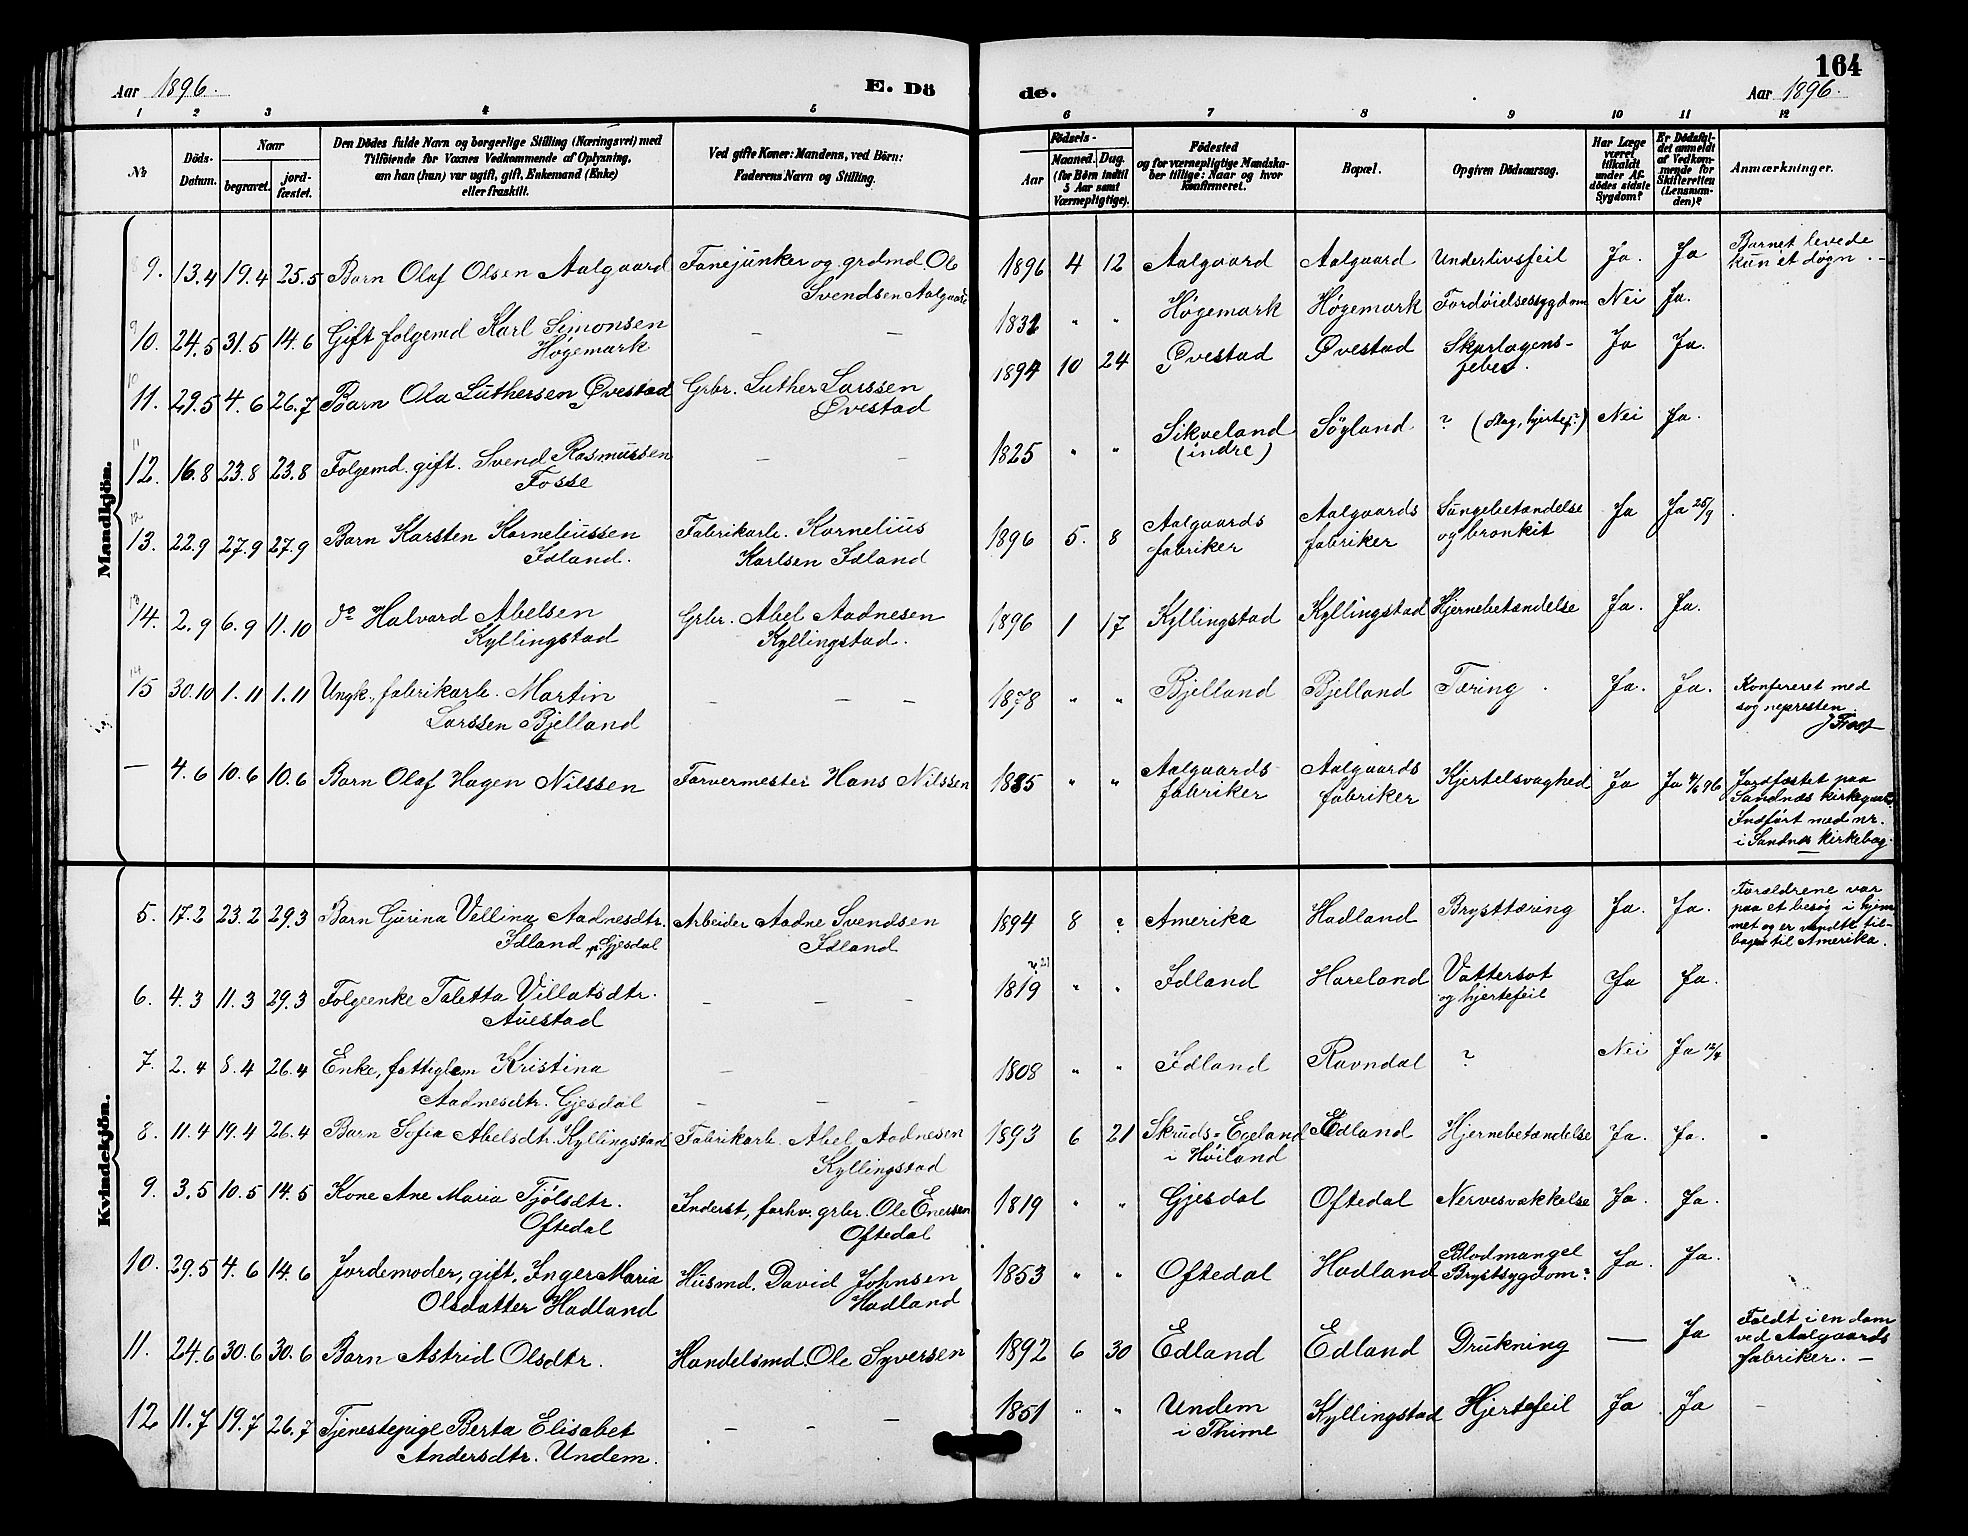 164
Aar 1896.
E. Dö
de.
Aar 1896.
1 2 3 4 5 6 7 8 9 10 11 12
№
Döds-
Datum.
Naar
begravet.
jord-
fæstet.
Den Dödes fulde Navn og borgerlige Stilling (Næringsvei) med
Tilföiende for Voxnes Vedkommende af Oplysning,
om han (hun) var ugift, gift, Enkemand (Enke)
eller fraskilt.
Ved gifte Koner: Mandens, ved Börn:
Faderens Navn og Stilling.
Födsels-
Aar
Maaned. Dag.
(for Börn indtil
5 Aar samt
Værnepligtige).
Födested
og for værnepligtige Mandska-
ber tillige: Naar og hvor
konfirmeret.
Bopæl.
Opgiven Dödsaarsag.
Har Læge
været
tilkaldt
under Af-
dödes sidste
Sygdom?
Er Dödsfal-
det anmeldt
af Vedkom-
mende for
Skifteretten
(Lensman-
den)?
Anmærkninger.
Mandkjön.
9. 13.4 19.4 25.5 Barn Olaf Olsen Aalgaard Fanejunker og grdmd Ole
Svendsen Aalgaard
1896 4 12 Aalgaard Aalgaard Underlivsfeil Ja. Ja Barnet levede
kun et døgn. -
10. 24.5 31.5 14.6 Gift folgemd Karl Simonsen
Høgemark
1832 " " Høgemark Høgemark Fordøielsessygdom Nei Ja.
11. 29.5 4.6 26.7 Barn Ola Luthersen Øvestad Grbr. Luther Larssen
Øvestad
1894 10 24 Øvestad Øvestad Skarlagens-
feber. Ja Ja.
12. 16.8 23.8 23.8 Folgemd. gift. Svend Rasmussen
Fosse
1825 " " Sikveland
(indre) Söyland ? (slag, hjertef?) Nei Ja.
13. 22.9 27.9 27.9 Barn Karsten Korneliussen
Idland.
Fabrikarb. Kornelius
Karlsen Idland
1896 5. 8 Aalgaards
fabriker Aalgaards
fabriker Lungebetændelse
og bronkit Ja Ja 25/9
14. 2.9 6.9 11.10 do Halvard Abelsen
Kyllingstad
Grbr. Abel Aadnesen
Kyllingstad.
1896 1 17 Kyllingstad Kyllingstad Hjernebetændelse Ja. Ja.
15 30.10 1.11 1.11 Ungk., fabrikarb. Martin
Larssen Bjelland
1878 " " Bjelland Bjelland Tæring. Ja. Ja. Konfereret med
sognepresten.
— 4.6 10.6 10.6 Barn Olaf Hagen Nilssen Farvermester Hans Nilssen
1885 " " Aalgaards
fabriker Aalgaards
fabriker Kjertelsvaghed Ja Ja 4/6 96 Jordfæstet paa
Sandnæs kirkegaard.
Indført med nr.
i Sandnæs kirkebog.
Kvindekjön.
5. 17.2 23.2 29.3 Barn Gurina Vellina Aadnesdtr.
Idland, Gjesdal
Arbeider Aadne Svendsen
Idland
1894 8 ? Amerika Hadland Brysttæring Ja. Ja. Forældrene var
paa et besøg i hjem
met og er vendte til-
bage til Amerika.
6. 4.3 11.3 29.3 Folgeenke Taletta Villatsdtr.
Auestad
1819 " " Idland Hareland Vattersot
og hjertefeil Ja Ja.
7. 2.4 8.4 26.4 Enke, fattiglem Kristina
Aadnesdtr. Gjesdal
1808 " " Idland Ravndal ? Nei Ja 12/4
8. 11.4 19.4 26.4 Barn Sofia Abelsdtr. Kyllingstad Fabrikarb. Abel Aadnesen
Kyllingstad
1893 6 21 Skruds-Egeland
i Høiland Edland Hjernebetændelse Ja. Ja.
9. 3.5 10.5 14.5 Kone Ane Maria Tjølsdtr.
Oftedal
Inderst, forhv. grbr. Ole Enersen
Oftedal
1819 " " Gjesdal Oftedal Nervesvækkelse Ja. Ja.
10. 29.5 4.6 14.6 Jordemoder, gift, Inger Maria
Olsdatter Hadland
Husmd. David Johnsen
Hadland
1853 " " Oftedal Hadland Blodmangel
Brystsygdom? Ja. Ja.
11. 24.6 30.6 30.6 Barn Astrid Olsdtr. Handelsmd. Ole Syversen
1892 6 30 Edland Edland Drukning — Ja Faldt i en dam
ved Aalgaards
fabriker. —
12 11.7 19.7 26.7 Tjenestepige Berta Elisabet
Andersdtr. Undem.
1851 " " Undem
i Thime Kyllingstad Hjertefeil Ja Ja